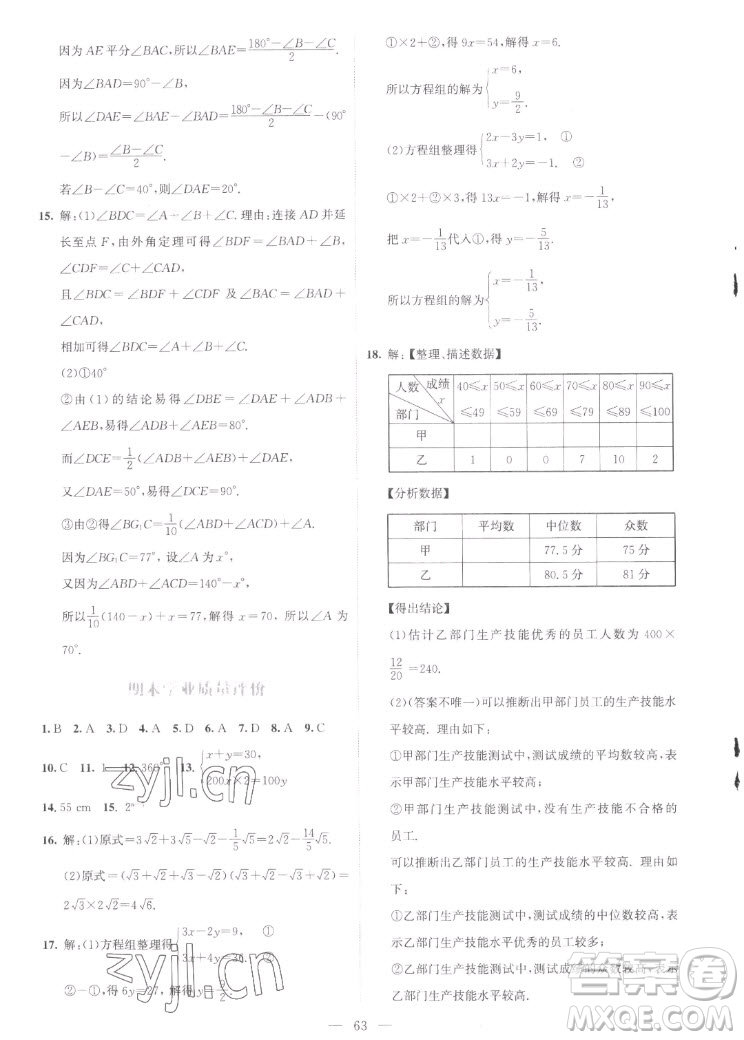 因为 AE 平分∠BAC,所以∠BAE=(180°-∠B-∠C)/2.
因为∠BAD=90°-∠B,
所以∠DAE=∠BAE-∠BAD=(180°-∠B-∠C)/2-(90°
-∠B)=(∠B-∠C)/2.
若∠B-∠C=40°,则∠DAE=20°.
15. 解:(1)∠BDC=∠A+∠B+∠C. 理由:连接 AD 并延
长至点 F,由外角定理可得∠BDF=∠BAD+∠B,
∠CDF=∠C+∠CAD,
且∠BDC=∠BDF+∠CDF 及∠BAC=∠BAD+
∠CAD,
相加可得∠BDC=∠A+∠B+∠C.
(2)①40°
②由(1)的结论易得∠DBE=∠DAE+∠ADB+
∠AEB,易得∠ADB+∠AEB=80°.
而∠DCE=1/2(∠ADB+∠AEB)+∠DAE,
又∠DAE=50°,所以∠DCE=90°.
③由②得∠BG₁C=1/10(∠ABD+∠ACD)+∠A.
因为∠BG₁C=77°,设∠A=x°,
又因为∠ABD+∠ACD=140°-x°,
所以1/10(140-x)+x=77,解得 x=70,所以∠A为
70°.
期末学业质量评价
1. B 2. A 3. D 4. A 5. A 6. D 7. D 8. A 9. C
10. C 11. 1 12. 360° 13. {x+y=30, 200x×2=100y
14. 55 cm 15.
16. 解:(1)原式=2√3+3√5-1/5√5=2√5-14/5√5.
(2)原式=(√3+√2+√3-√2)(√3+√2-√3+√2)=
2√3×2√2=4√6.
17. 解:(1)方程组整理得{3x-2y=9, ①
②-①,得 6y=27,解得 y=9/2.
①×2+②,得 9x=54,解得 x=6.
所以方程组的解为{x=6, y=9/2.
(2)方程组整理得{2x-3y=1, ① 3x+2y=-1. ②
①×2+②×3,得 13x=-1,解得 x=-1/13.
把 x=-1/13代入①,得 y=-5/13.
所以方程组的解为{x=-1/13, y=-5/13.
18. 解:【整理、描述数据】
人数 成绩x 部门 40≤x≤49 50≤x≤59 60≤x≤69 70≤x≤79 80≤x≤89 90≤x≤100
甲
乙 1 0 0 7 10 2
【分析数据】
部门 平均数 中位数 众数
甲 77.5分 75分
乙 80.5分 81分
【得出结论】
(1)估计乙部门生产技能优秀的员工人数为 400×
12/20=240.
(2)(答案不唯一)可以推断出甲部门员工的生产技能水
平较高. 理由如下:
①甲部门生产技能测试中,测试成绩的平均数较高,表
示甲部门生产技能水平较高;
②甲部门生产技能测试中,没有生产技能不合格的
员工.
可以推断出乙部门员工的生产技能水平较高. 理由
如下:
①乙部门生产技能测试中,测试成绩的中位数较高,表
示乙部门生产技能水平优秀的员工较多;
②乙部门生产技能测试中,测试成绩的众数较高,表示
乙部门生产技能水平较高.
63
zyjl.cn
zyjl.cn
答案圈